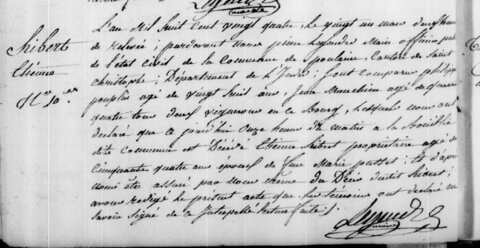 hibert
Etienne
N.º 10.
L'an Mil huit Cent vingt quatre, Le vingt un mars dans heure
de Relevée; pardevant nous pierre Legendre Maire officier public
de l'état civil de la Commune de poulaine, Canton de Saint
christophe; Département de l'Indre; sont comparus philippe
agé de vingt huit ans, Jean agé de quarante
quatre tous deux vignerons en ce Bourg, Lesquels nous ont
declaré que ce Onze heures du matin a la
dite commune est Décédé Etienne hibert propriétaire agé de
Cinquante quatre ans époux de feue Marie; Et d'après
nous être assuré par nous même du Décès dudit hibert;
avons redigé Le present acte que les témoins ont declaré ne
savoir signé de ce Interpellés Lecture faite.
Legendre